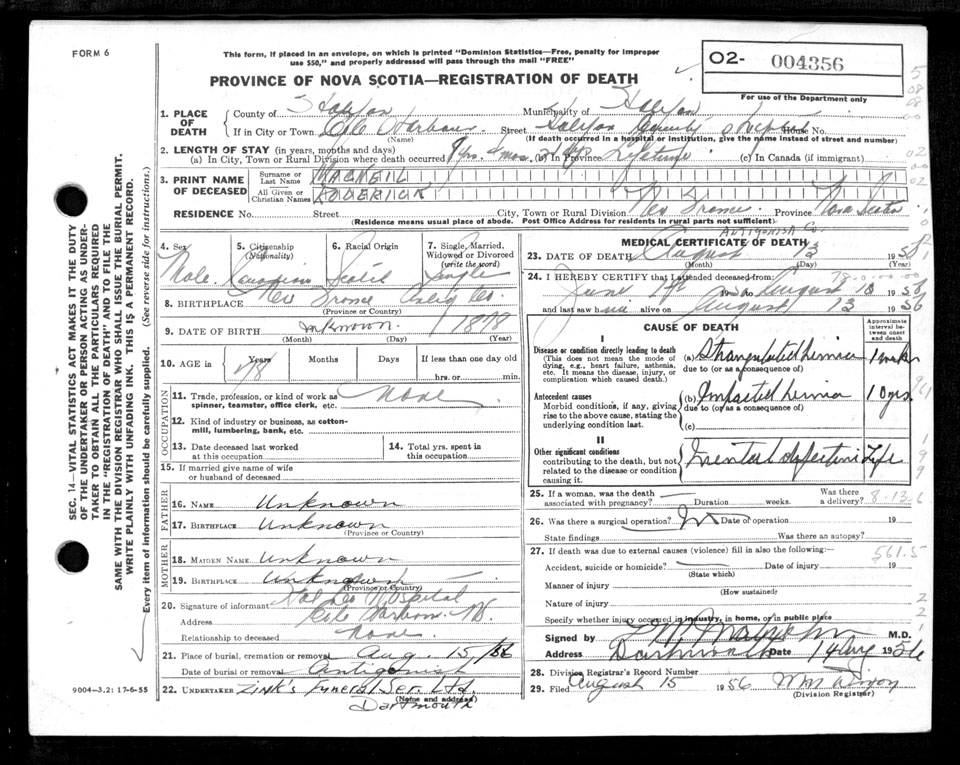 FORM 6
This form, if placed in an envelope, on which is printed "Dominion Statistics—Free, penalty for improper
use $50," and properly addressed will pass through the mail "FREE"
02- 004356
PROVINCE OF NOVA SCOTIA—REGISTRATION OF DEATH
For use of the Department only
1. PLACE OF DEATH
County of Halifax Municipality of Halifax
If in City or Town Cole Harbour Street Halifax County Hospital House No.
(Name) (If death occurred in a hospital or institution, give the name instead of street and number)
2. LENGTH OF STAY (in years, months and days)
(a) In City, Town or Rural Division where death occurred 9 yrs. 4 mos. (b) In Province Lifetime (c) In Canada (if immigrant)
3. PRINT NAME OF DECEASED
Surname or Last Name MACNEIL
All Given or Christian Names RODERICK
RESIDENCE No. Street City, Town or Rural Division Province Nova Scotia
(Residence means usual place of abode. Post Office Address for residents in rural parts not sufficient)
ANTIGONISH Co.
4. Sex
Male
5. Citizenship (Nationality)
Canadian
6. Racial Origin
Scotch
7. Single, Married, Widowed or Divorced (write the word)
Single
8. BIRTHPLACE Antig Co.
(Province or Country)
9. DATE OF BIRTH unknown 1878
(Month) (Day) (Year)
10. AGE in Years Months Days If less than one day old
78 hrs. or min.
OCCUPATION
11. Trade, profession, or kind of work as spinner, teamster, office clerk, etc. None
12. Kind of industry or business, as cotton-mill, lumbering, bank, etc.
13. Date deceased last worked at this occupation
14. Total yrs. spent in this occupation
15. If married give name of wife or husband of deceased
FATHER
16. NAME Unknown
17. BIRTHPLACE Unknown
(Province or Country)
MOTHER
18. MAIDEN NAME Unknown
19. BIRTHPLACE Unknown
(Province or Country)
20. Signature of informant Hal Co Hospital
Address Cole Harbour NS
Relationship to deceased None
21. Place of burial, cremation or removal Aug. 15/56
Date of burial or removal Antigonish
22. UNDERTAKER Zink's Funeral Ser. Ltd.
(Name and address)
Dartmouth
9004—3.2: 17-6-55
MEDICAL CERTIFICATE OF DEATH
23. DATE OF DEATH August 13 1956
(Month) (Day) (Year)
24. I HEREBY CERTIFY that I attended deceased from
June 1956 to August 13 1956
and last saw him alive on August 13 1956
CAUSE OF DEATH
Approximate interval between onset and death
I
Disease or condition directly leading to death
(This does not mean the mode of dying, e.g., heart failure, asthenia, etc. It means the disease, injury, or complication which caused death.)
(a) Strangulated hernia
due to (or as a consequence of)
Antecedent causes
Morbid conditions, if any, giving rise to the above cause, stating the underlying condition last.
(b) Impacted hernia 10 yrs
due to (or as a consequence of)
(c)
II
Other significant conditions
contributing to the death, but not related to the disease or condition causing it.
Mental defective Life
25. If a woman, was the death associated with pregnancy? Duration weeks. Was there a delivery?
8-13-6
26. Was there a surgical operation? No Date of operation 19
State findings Was there an autopsy?
27. If death was due to external causes (violence) fill in also the following:—
561.5
Accident, suicide or homicide? Date of injury 19
(State which)
Manner of injury
(How sustained)
Nature of injury
Specify whether injury occurred in industry, in home, or in public place
Signed by M.D.
Address Dartmouth Date 14 Aug 1956
28. Division Registrar's Record Number
29. Filed August 15 1956
(Division Registrar)
SEC. 14—VITAL STATISTICS ACT MAKES IT THE DUTY
OF THE UNDERTAKER OR PERSON ACTING AS UNDER-
TAKER TO OBTAIN ALL THE PARTICULARS REQUIRED
IN THE "REGISTRATION OF DEATH" AND TO FILE THE
SAME WITH THE DIVISION REGISTRAR WHO SHALL ISSUE THE BURIAL PERMIT.
WRITE PLAINLY WITH UNFADING INK. THIS IS A PERMANENT RECORD.
Every item of information should be carefully supplied. (See reverse side for instructions.)